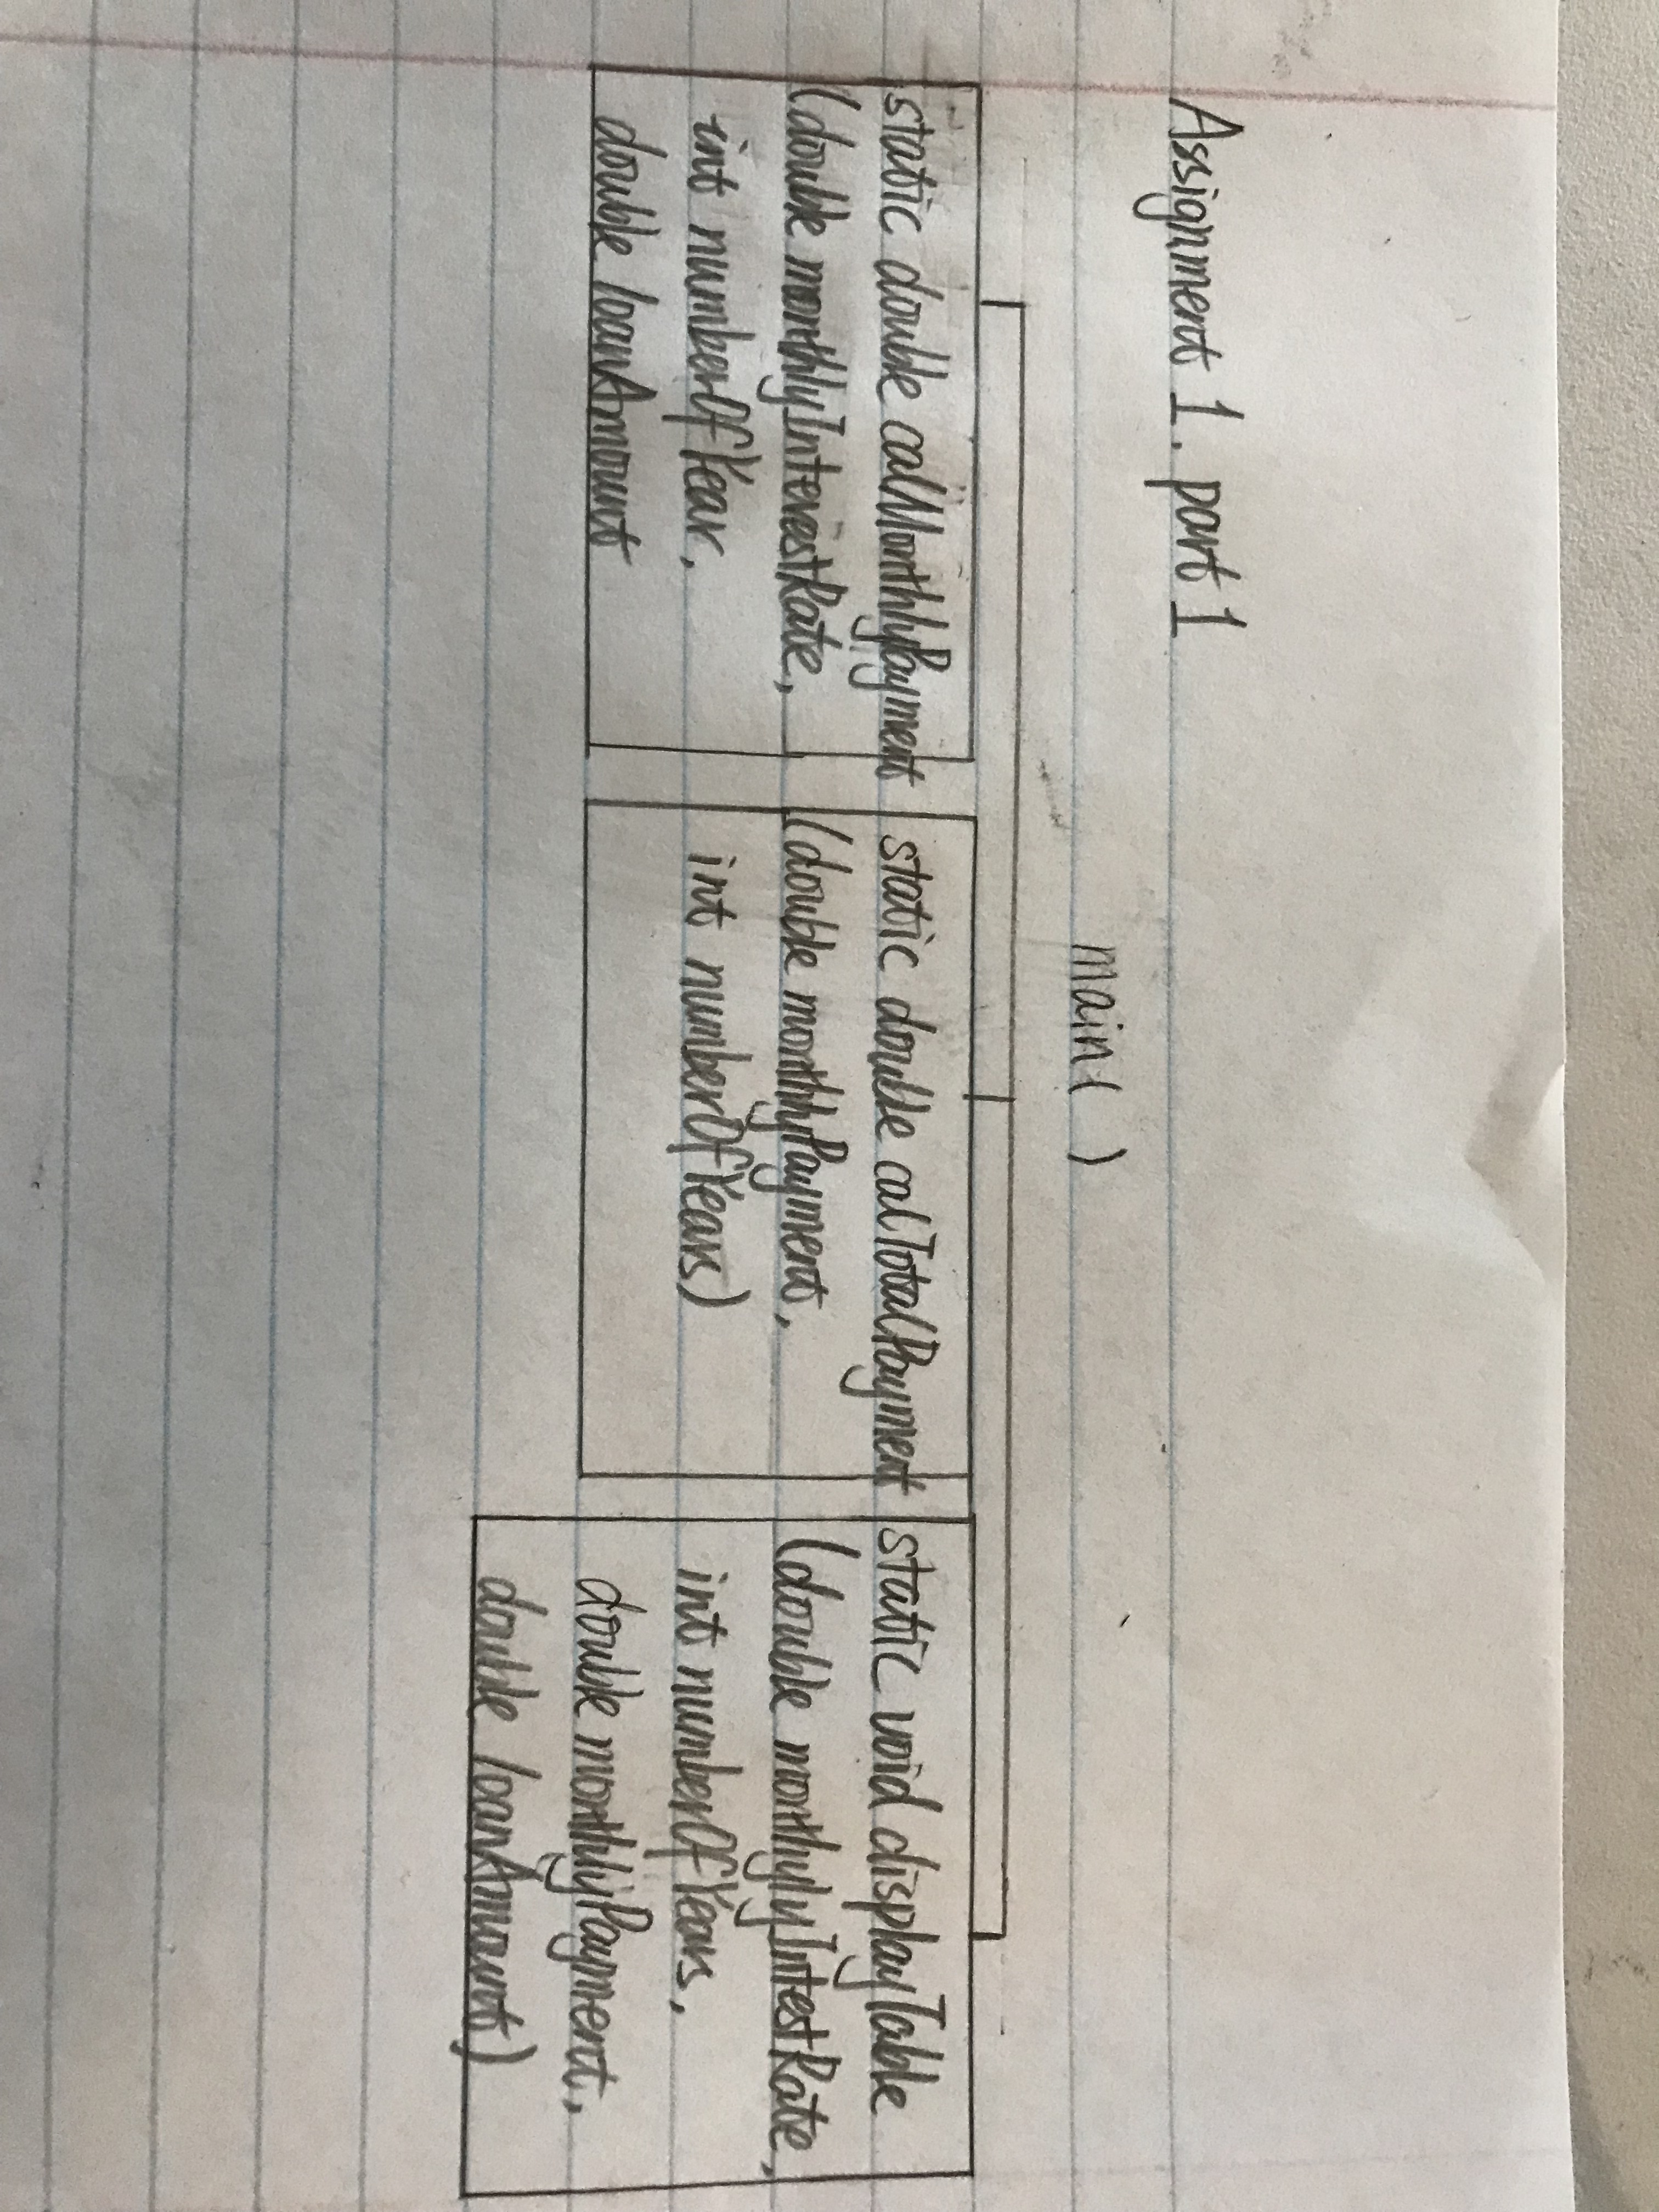 Assignment 1. part 1
main( )
static double calMonthlyPayment
(double monthlyInterestRate,
int numberOfYear,
double loanAmount
static double calTotalPayment
(double monthlyPayment,
int numberOfYears)
static void displayTable
(double monthylyIntestRate,
int numberOfYears,
double monthlyPayment,
double loanAmount)